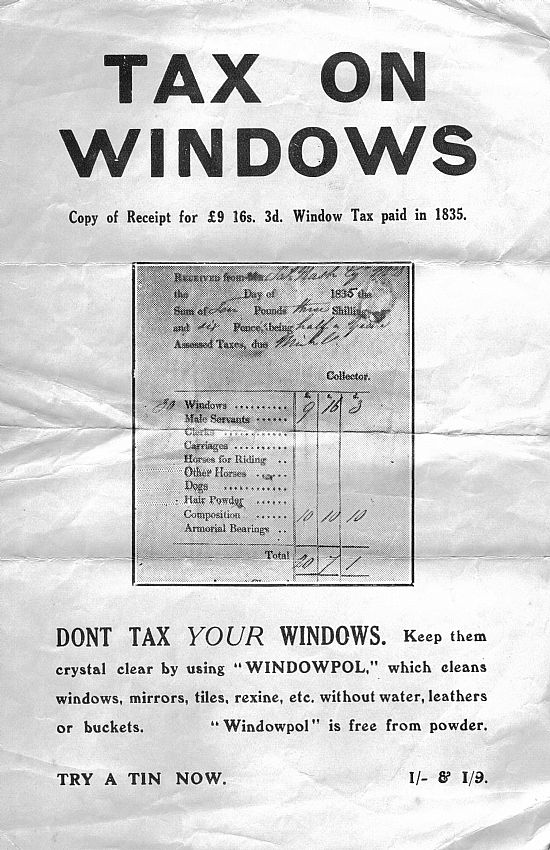 TAX ON
WINDOWS
Copy of Receipt for £9 16s. 3d. Window Tax paid in 1835.
RECEIVED from Nash Esq
the Day of 1835 the
Sum of Ten Pounds three Shillings
and six Pence, being half a Years
Assessed Taxes, due Michs
Collector.
30 Windows .......... 9 16 3
Male Servants ......
Clerks ............
Carriages ..........
Horses for Riding ..
Other Horses ....
Dogs ............
Hair Powder ......
Composition ...... 10 10 10
Armorial Bearings ..
Total 20 7 1
DONT TAX YOUR WINDOWS. Keep them
crystal clear by using "WINDOWPOL," which cleans
windows, mirrors, tiles, rexine, etc. without water, leathers
or buckets. "Windowpol" is free from powder.
TRY A TIN NOW. 1/- & 1/9.